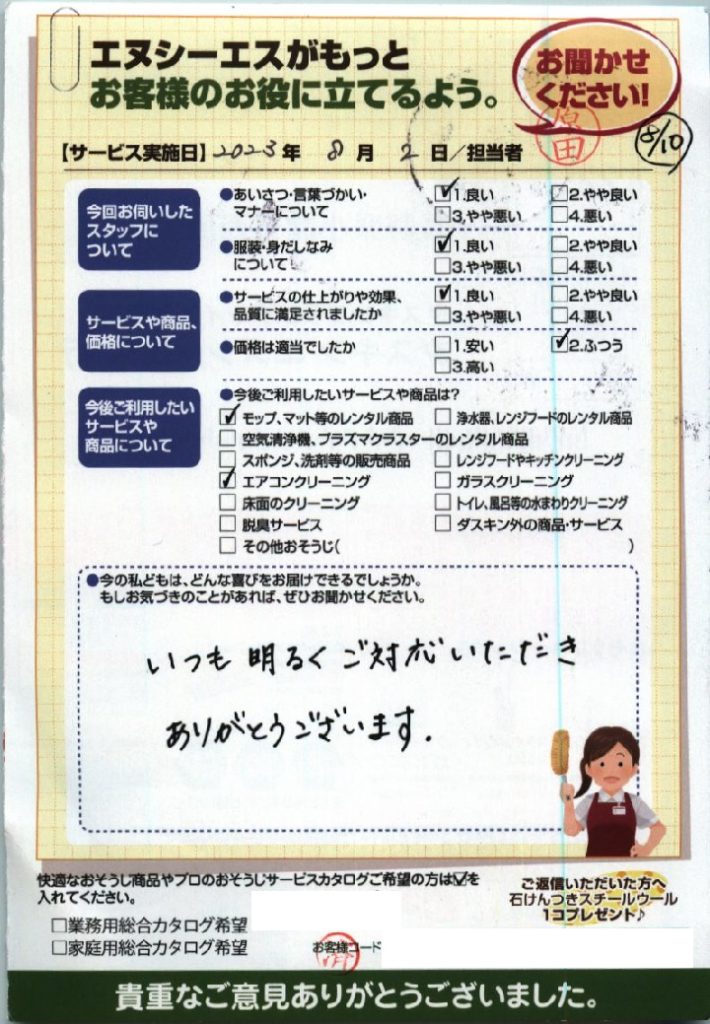 エヌシーエスがもっと
お客様のお役に立てるよう。
お聞かせ
ください!
【サービス実施日】2023年 8月 2日/担当者
原田
8/10
今回お伺いした
スタッフに
ついて
●あいさつ・言葉づかい・
マナーについて
☑1.良い □2.やや良い
□3.やや悪い □4.悪い
●服装・身だしなみ
について
☑1.良い □2.やや良い
□3.やや悪い □4.悪い
サービスや商品、
価格について
●サービスの仕上がりや効果、
品質に満足されましたか
☑1.良い □2.やや良い
□3.やや悪い □4.悪い
●価格は適当でしたか
□1.安い ☑2.ふつう
□3.高い
今後ご利用したい
サービスや
商品について
●今後ご利用したいサービスや商品は?
☑モップ、マット等のレンタル商品 □浄水器、レンジフードのレンタル商品
□空気清浄機、プラズマクラスターのレンタル商品
□スポンジ、洗剤等の販売商品 □レンジフードやキッチンクリーニング
☑エアコンクリーニング □ガラスクリーニング
□床面のクリーニング □トイレ、風呂等の水まわりクリーニング
□脱臭サービス □ダスキン外の商品・サービス
□その他おそうじ( )
●今の私どもは、どんな喜びをお届けできるでしょうか。
もしお気づきのことがあれば、ぜひお聞かせください。
いつも明るくご対応いただき
ありがとうございます.
快適なおそうじ商品やプロのおそうじサービスカタログご希望の方は☑を
入れてください。
□業務用総合カタログ希望
□家庭用総合カタログ希望
お客様コード
ご返信いただいた方へ
石けんつきスチールウール
1コプレゼント♪
貴重なご意見ありがとうございました。